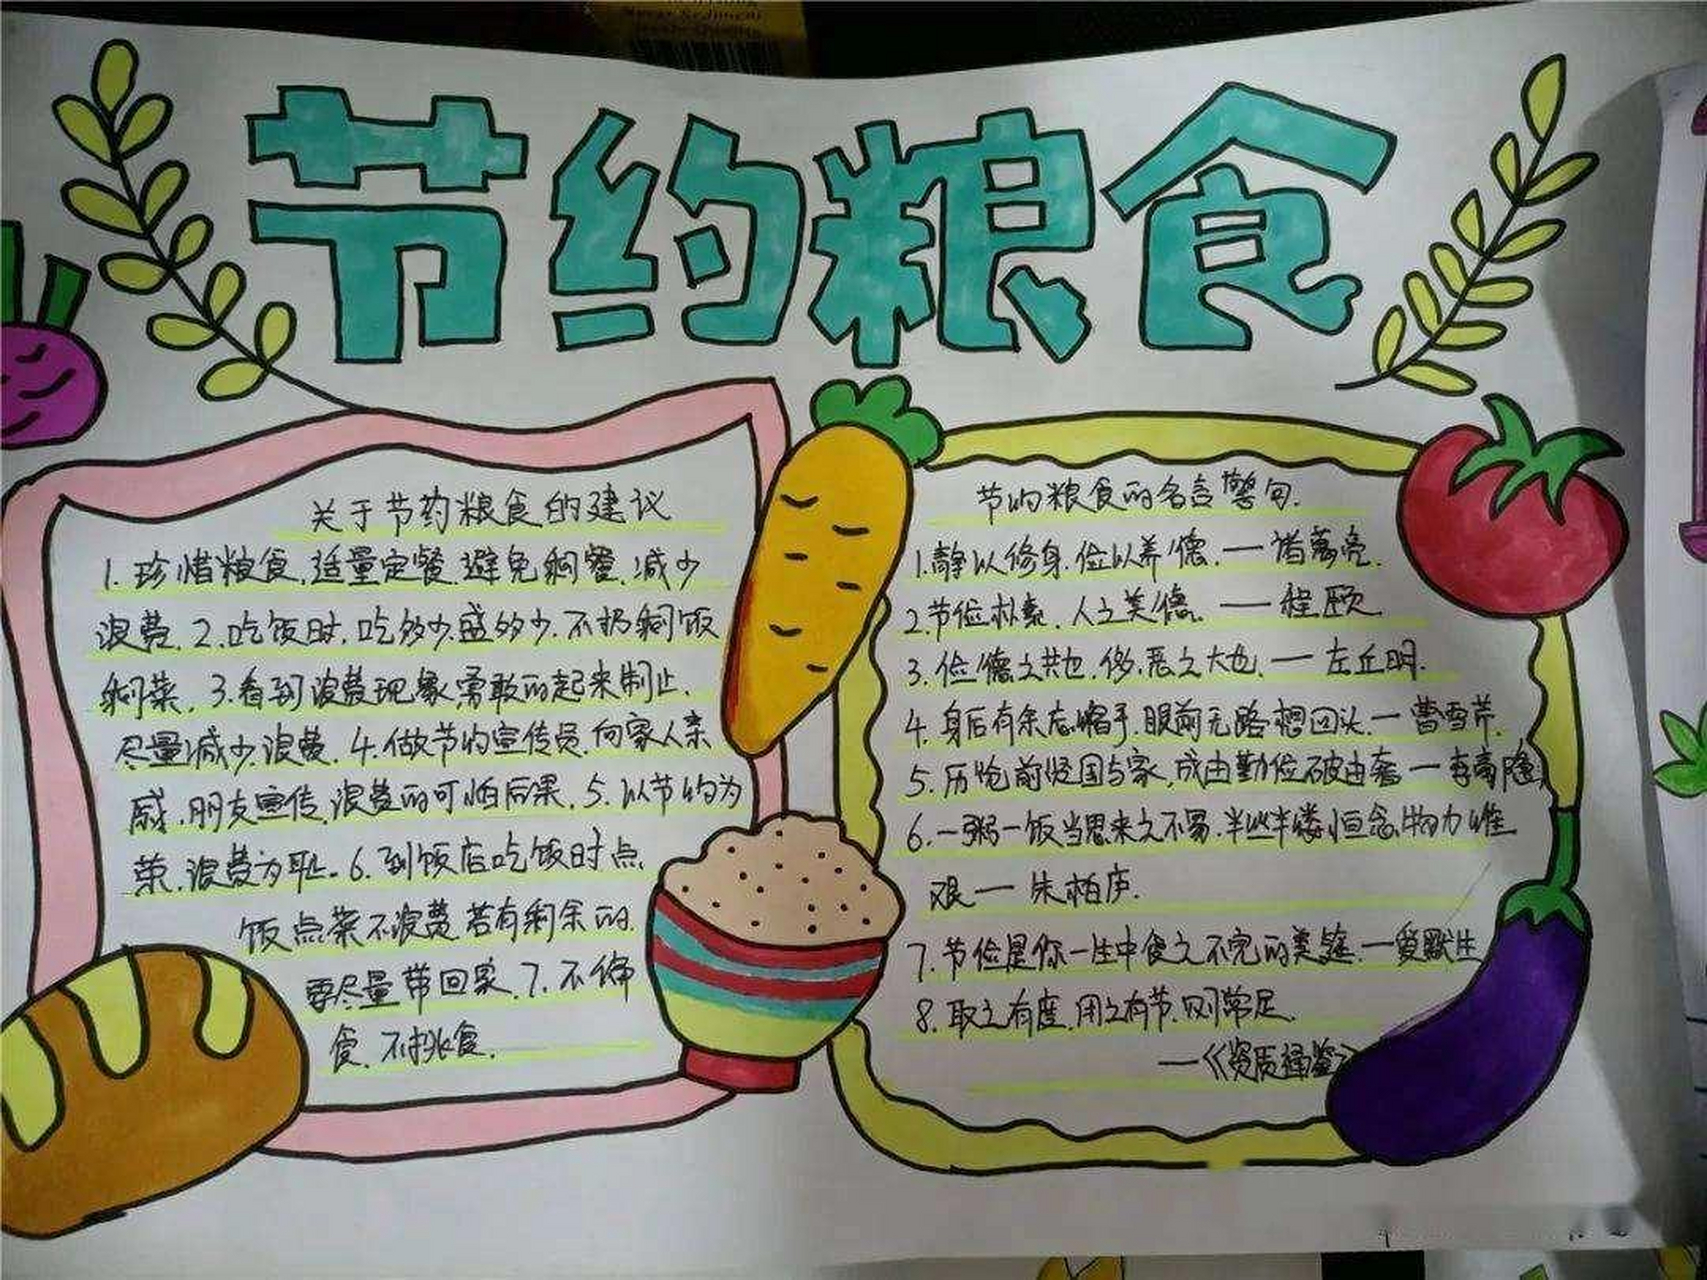 节约粮食
关于节约粮食的建议
1. 珍惜粮食,适量定餐,避免剩餐,减少
浪费. 2. 吃饭时,吃多少,盛多少,不扔剩饭
剩菜. 3. 看到浪费现象,勇敢的起来制止.
尽量减少浪费. 4. 做节约宣传员,向家人亲
戚.朋友宣传,浪费的可怕后果. 5. 以节约为
荣.浪费为耻. 6. 到饭店吃饭时点.
饭点菜不浪费若有剩余的.
要尽量带回家. 7. 不偏
食.不挑食.
节约粮食的名言警句.
1. 静以修身.俭以养德. — 诸葛亮.
2. 节俭朴素.人之美德. — 程颐
3. 俭,德之共也,侈,恶之大也. — 左丘明.
4. 身后有余忘缩手.眼前无路想回头. — 曹雪芹.
5. 历览前贤国与家,成由勤俭破由奢 — 李商隐
6. 一粥一饭当思来之不易.半丝半缕恒念物力维
艰 — 朱柏庐.
7. 节俭是你一生中食之不完的美筵. — 爱默生
8. 取之有度.用之有节.则常足.
—《资质通鉴》